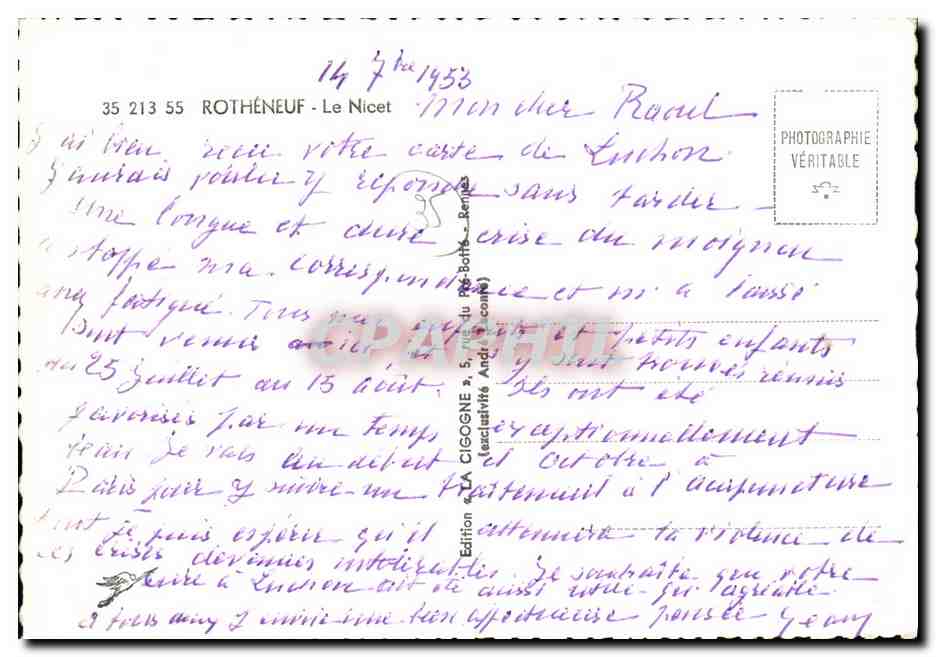 14 7bre 1953
35 213 55 ROTHÉNEUF - Le Nicet
Mon cher Raoul
PHOTOGRAPHIE
VÉRITABLE
J'ai bien reçu votre carte de Luchon.
J'aurais voulu y répondre sans tarder -
Une longue et dure crise du moignon
a stoppé ma correspondance et m'a laissé
fatigué. Tous mes enfants et petits enfants
sont venus ici et s'y sont trouvés réunis
du 25 juillet au 15 août. Ils ont été
favorisés par un temps exceptionnellement
beau. Je vais au début d'octobre à
Paris pour y suivre un traitement à l'acupuncture
dont je puis espérer qu'il atténuera la violence de
ces crises devenues intolérables. Je souhaite que votre
cure à Luchon ait été aussi utile qu'agréable.
à tous deux j'envoie une bien affectueuse pensée Jean
35
Edition « LA CIGOGNE », 5, rue du Pré-Botté - Rennes
(exclusivité André Leconte)
CPAPHIL